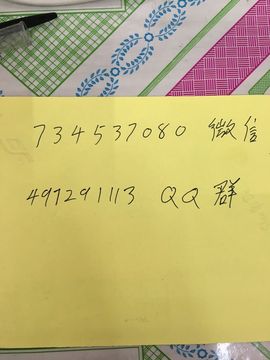 734537080 微信
497291113 QQ 群